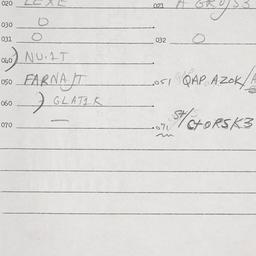 020 LEXE 021 A GRO/S3
030 O
031 O 032 O
040 NU.IT
050 FARNAJT 051 QAP AZOK/
060 GLATIK
070 — 071 St/CHORSK3